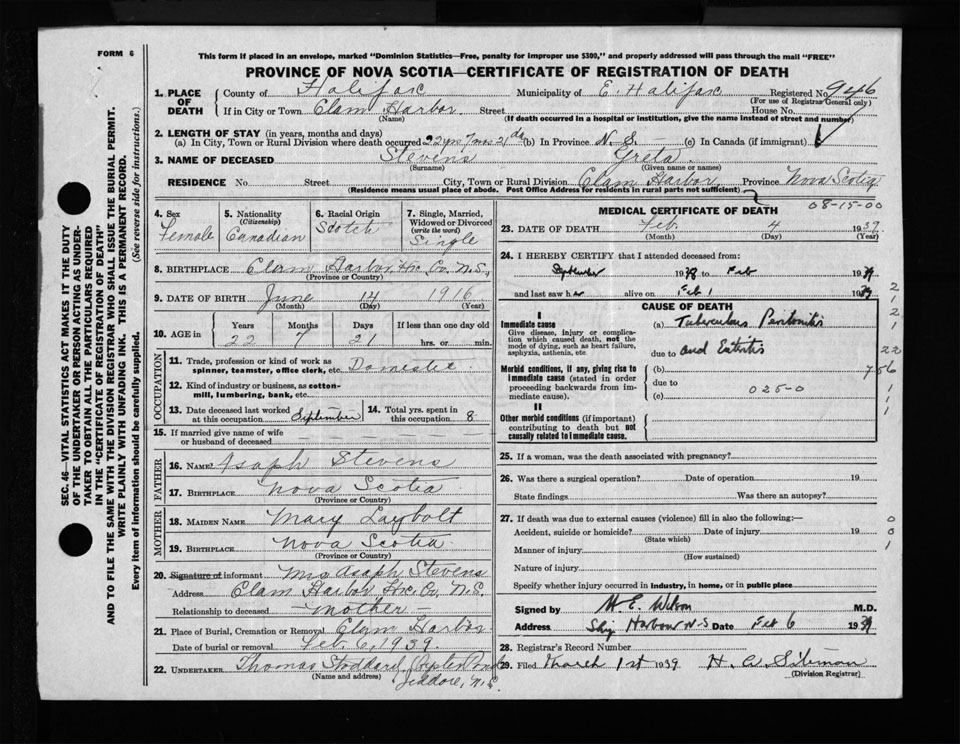 FORM 6
This form if placed in an envelope, marked "Dominion Statistics—Free, penalty for improper use $300," and properly addressed will pass through the mail "FREE"
PROVINCE OF NOVA SCOTIA—CERTIFICATE OF REGISTRATION OF DEATH
1. PLACE OF DEATH County of Halifax Municipality of E. Halifax Registered No. 946
(For use of Registrar General only)
If in City or Town Clam Harbor Street House No.
(Name) (If death occurred in a hospital or institution, give the name instead of street and number)
2. LENGTH OF STAY (in years, months and days)
(a) In City, Town or Rural Division where death occurred 22 yrs 7 mos 21 da (b) In Province N. S. (c) In Canada (if immigrant)
3. NAME OF DECEASED Stevens Greta.
(Surname) (Given name or names)
RESIDENCE No. Street City, Town or Rural Division Clam Harbor, Province Nova Scotia
(Residence means usual place of abode. Post Office Address for residents in rural parts not sufficient)
08-15-00
4. Sex Female
5. Nationality (Citizenship) Canadian
6. Racial Origin Scotch
7. Single, Married, Widowed or Divorced (write the word) Single
8. BIRTHPLACE Clam Harbor, Hx. Co. N.S.,
(Province or Country)
9. DATE OF BIRTH June 14 1916
(Month) (Day) (Year)
10. AGE in Years Months Days If less than one day old
22 7 21 hrs. or min.
OCCUPATION
11. Trade, profession or kind of work as spinner, teamster, office clerk, etc. Domestic
12. Kind of industry or business, as cotton-mill, lumbering, bank, etc.
13. Date deceased last worked at this occupation September
14. Total yrs. spent in this occupation 8
15. If married give name of wife or husband of deceased
FATHER
16. NAME Asaph Stevens
17. BIRTHPLACE Nova Scotia
(Province or Country)
MOTHER
18. MAIDEN NAME Mary Laybolt
19. BIRTHPLACE Nova Scotia
(Province or Country)
20. Signature of informant Mrs Asaph Stevens
Address Clam Harbor Hx. Co. N.S.
Relationship to deceased — mother —
21. Place of Burial, Cremation or Removal Clam Harbor
Date of burial or removal Feb. 6, 1939.
22. UNDERTAKER Thomas Stoddard,
(Name and address) Jeddore, N.S.
MEDICAL CERTIFICATE OF DEATH
23. DATE OF DEATH Feb. 4 1939
(Month) (Day) (Year)
24. I HEREBY CERTIFY that I attended deceased from:
September 1938 to Feb 1939
and last saw her alive on Feb 1 1939
CAUSE OF DEATH
I
Immediate cause
Give disease, injury or complication which caused death, not the mode of dying, such as heart failure, asphyxia, asthenia, etc
(a) Tuberculous Peritonitis
due to and Enteritis
Morbid conditions, if any, giving rise to immediate cause (stated in order proceeding backwards from immediate cause).
(b)
due to 025-0
(c)
II
Other morbid conditions (if important) contributing to death but not causally related to immediate cause.
2
1
2
1
22
756
1
1
1
25. If a woman, was the death associated with pregnancy?
26. Was there a surgical operation? Date of operation 19
State findings Was there an autopsy?
27. If death was due to external causes (violence) fill in also the following:—
Accident, suicide or homicide? Date of injury 19
(State which)
Manner of injury
(How sustained)
Nature of injury
Specify whether injury occurred in industry, in home, or in public place
0
0
1
Signed by H. E. Wilson M.D.
Address Harbour N.S Date Feb 6 1939
28. Registrar's Record Number
29. Filed March 1st 1939
(Division Registrar)
SEC. 46—VITAL STATISTICS ACT MAKES IT THE DUTY
OF THE UNDERTAKER OR PERSON ACTING AS UNDER-
TAKER TO OBTAIN ALL THE PARTICULARS REQUIRED
IN THE "CERTIFICATE OF REGISTRATION OF DEATH"
AND TO FILE THE SAME WITH THE DIVISION REGISTRAR WHO SHALL ISSUE THE BURIAL PERMIT.
WRITE PLAINLY WITH UNFADING INK. THIS IS A PERMANENT RECORD.
Every item of information should be carefully supplied. (See reverse side for instructions.)